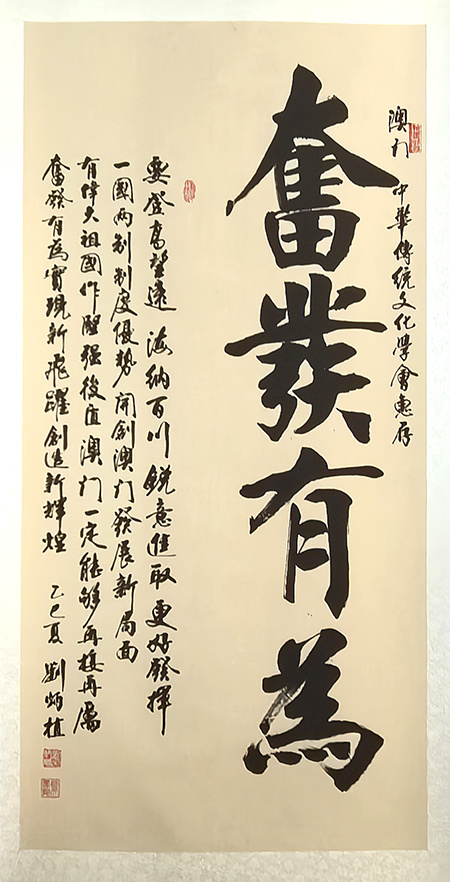 澳门 中華傳統文化學會惠存
奮發有為
要登高望遠 海納百川 銳意進取 更好發揮
一國两制制度優勢 開創澳门發展新局面
有偉大祖國作堅强後盾澳门一定能够再接再厲
奮發有為實現新飛躍創造新輝煌 乙巳夏 劉炳植